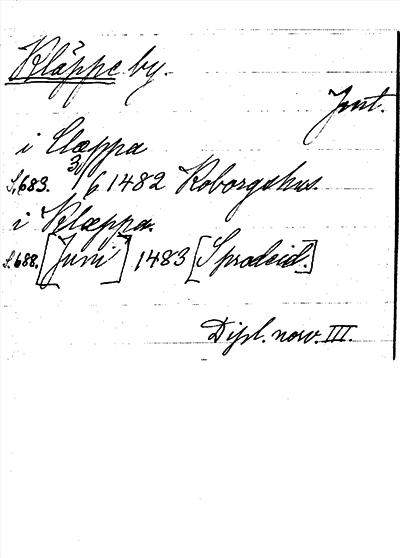 Kläppe by.
Jmt.
i Clæppa
S. 683. 3/6 1482 Roborgshus.
i Klæppa.
S. 688. [Juni] 1483 [Sprodeid.]
Dipl. norv. III.